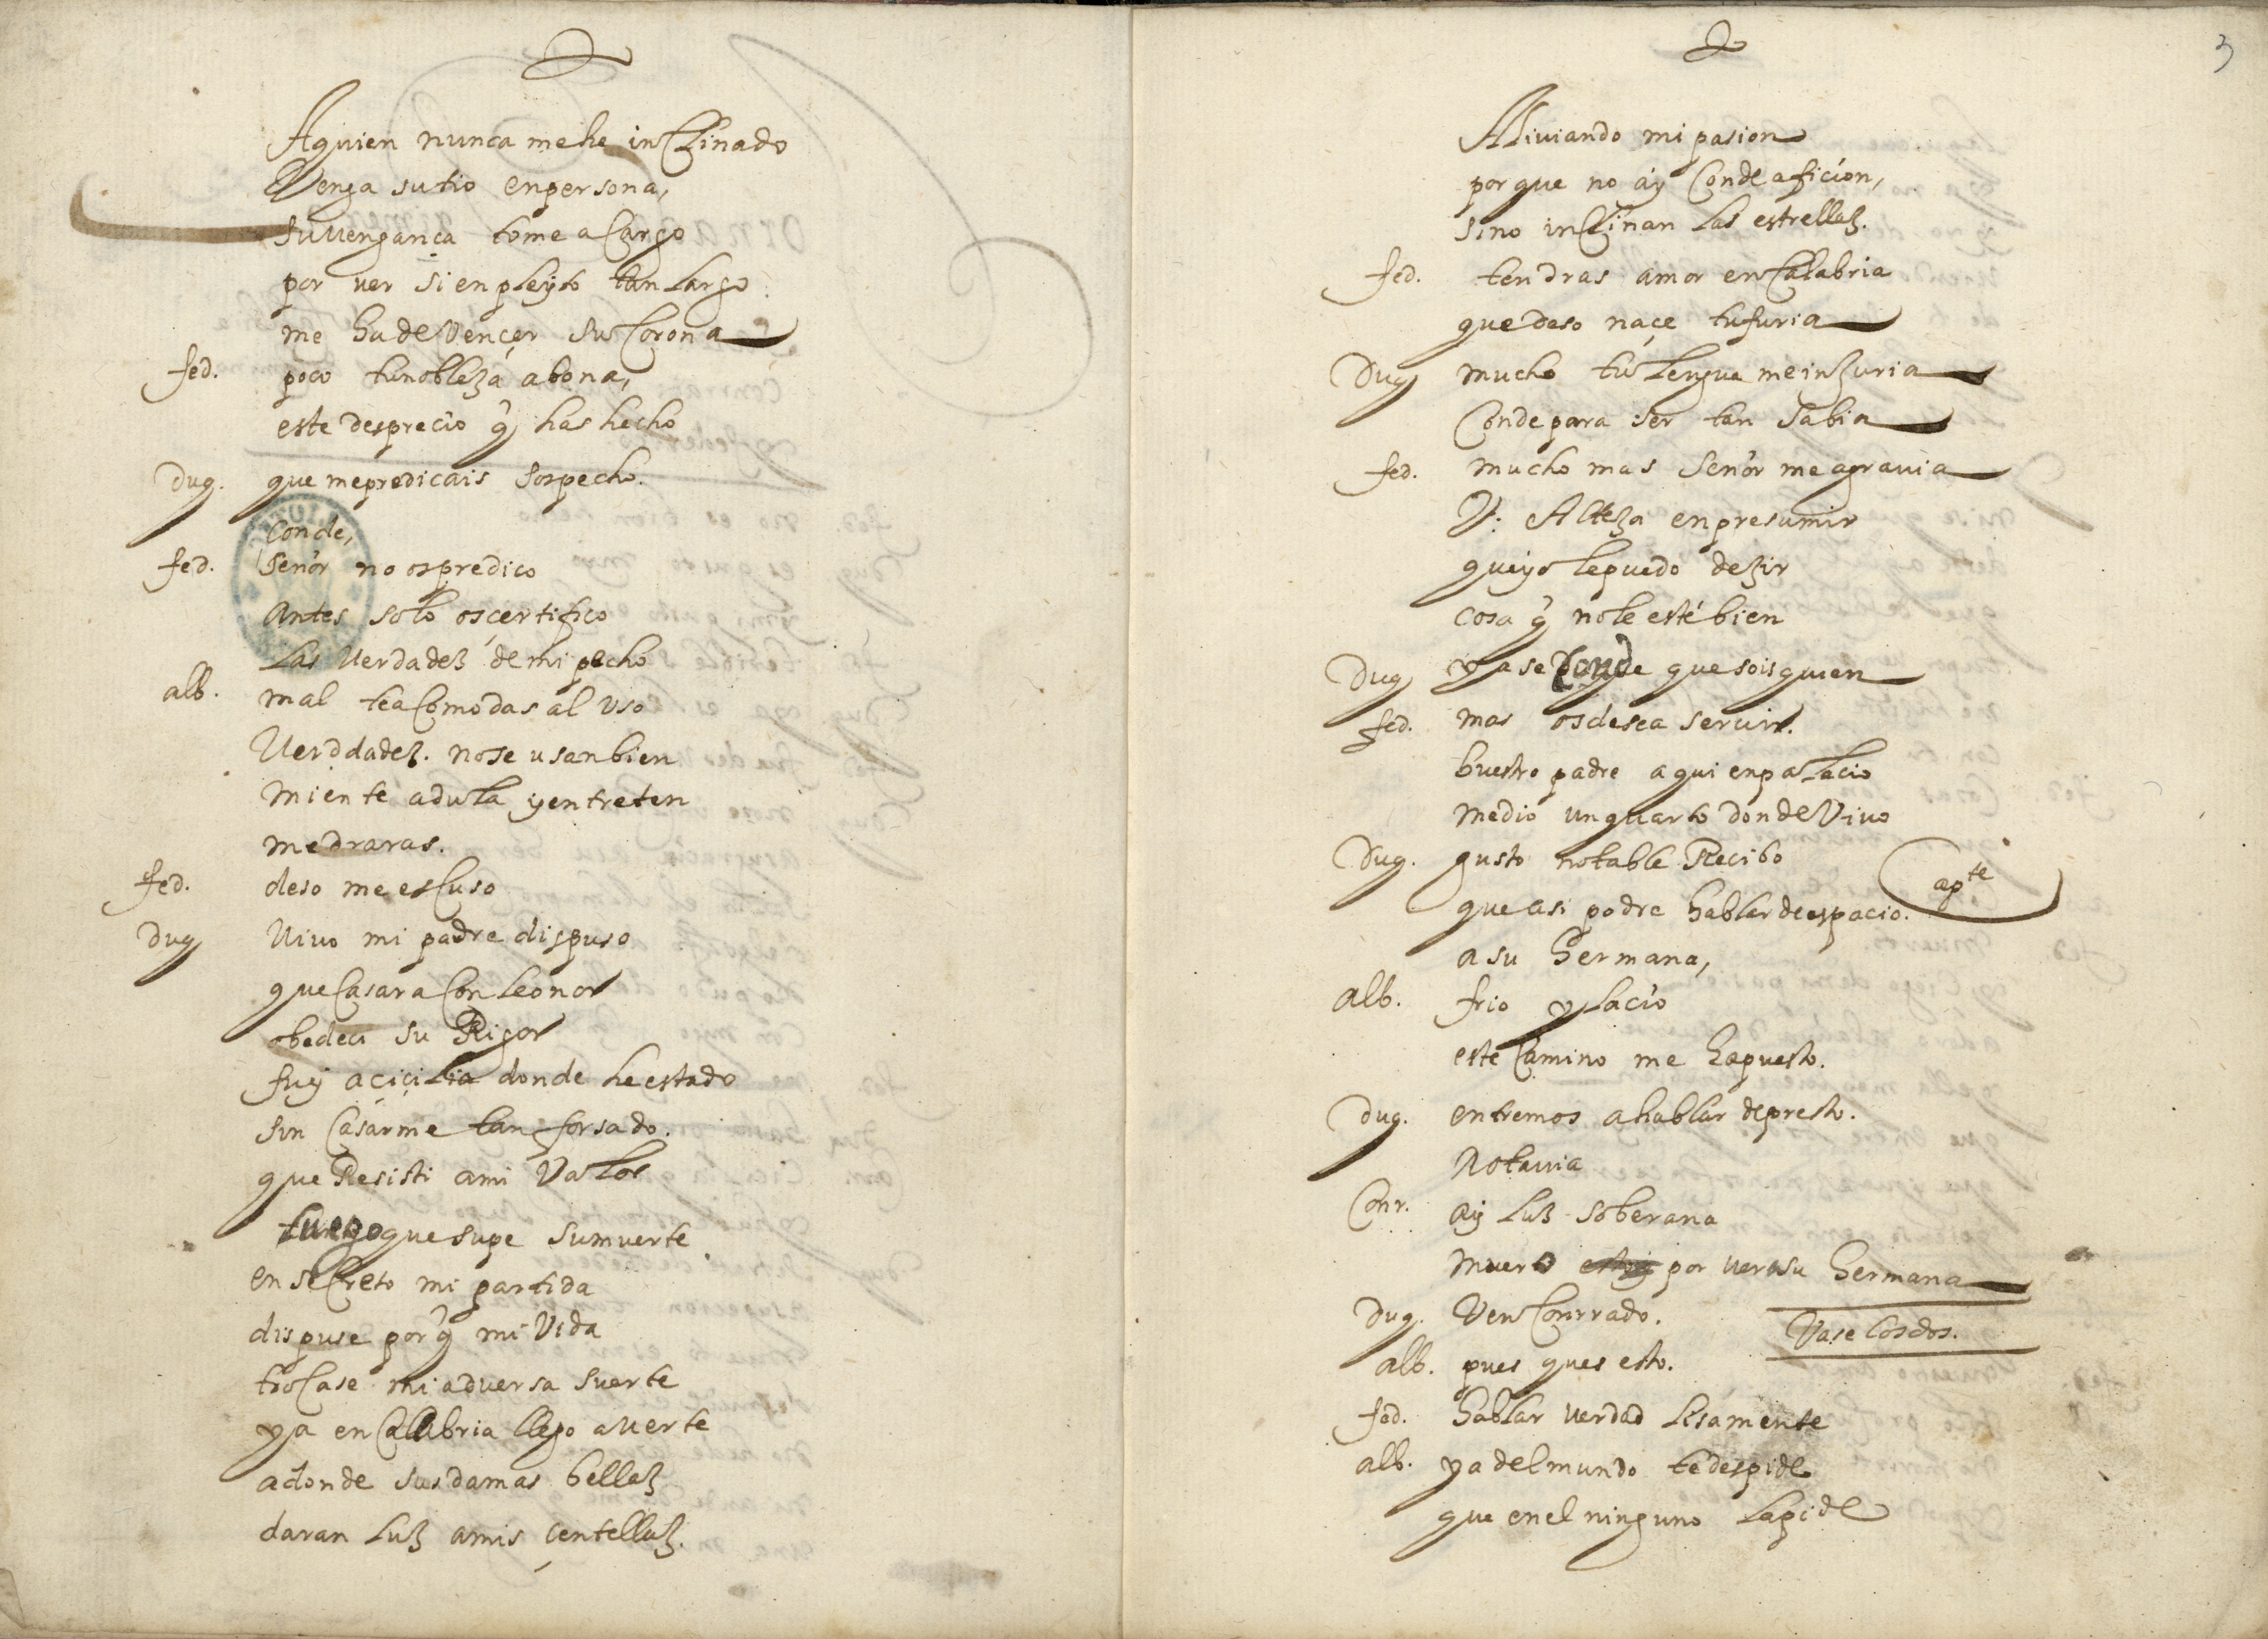 Aquien nunca mehe inclinado
Venga sutio enpersona,
suuengança tome acargo
por uer sienpleyto tan largo
me hadevençer su corona
fed. poco tunobleza abona,
este desprecio q̃ has hecho
Duq. que mepredicais sospecho.
Conde,
fed. Señor no ospredico
antes solo osçertifico
las verdadez demi pecho
alb. mal teacomodas al vso
Verddadez. nose usanbien
miente adula yentreten
medraras.
fed. deso me escuso
Duq Uiuo mi padre dispuso
quecasara con leonor
obedeci su Rigor
fuy açiçilia donde heestado
sin casarme tan forsado.
que Resisti ami valor
luego quesupe sumuerte
en secreto mi partida
dispuse porq̃ mi vida
trocase mi adversa suerte
ya encalabria llego averte
adonde sus damas bellaz
daran luz amis çentellaz.
3
Aliuiando mi pasion
porque no ay Conde aficion,
sino inclinan las estrellaz.
fed. tendras amor encalabria
quedeso naçe tufuria
Duq mucho tu lengua meinzuria
Conde para ser tan sabia
fed. mucho mas señor me agrauia
V: Alteza enpresumir
queyo lepuedo dezir
cosa q̃ nole esté bien
Duq ya se Conde que soisquien
fed. mas osdesea seruir.
buestro padre aqui enpalacio
medio unquarto dondevivo
Duq. gusto notable Recibo
queasi podre hablardeespacio. apte
a su hermana,
alb. frio y lacio
este camino me hapuesto.
Duq. entremos ahablar depresto.
Notauia
Conr. ay luz soberana
muero por uerasu hermana
Duq. Ven Conrrado. Vase losdos.
alb. pues ques esto.
fed. hablar verdad lisamente
alb. ya delmundo tedespide
que enel ninguno lapide